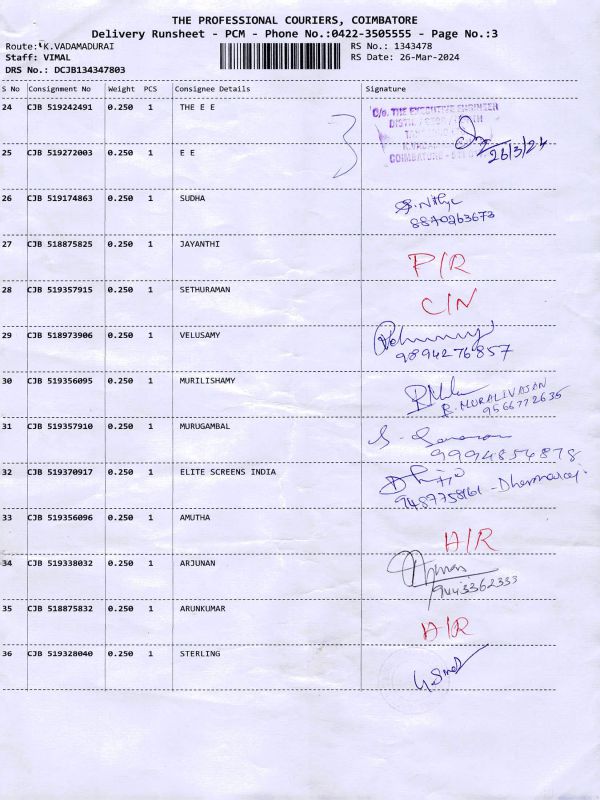 THE PROFESSIONAL COURIERS, COIMBATORE
Delivery Runsheet - PCM - Phone No.:0422-3505555 - Page No.:3
Route: K.VADAMADURAI
RS No.: 1343478
Staff: VIMAL
RS Date: 26-Mar-2024
DRS No.: DCJB134347803
S No Consignment No Weight PCS Consignee Details Signature
24 CJB 519242491 0.250 1 THE E E
C/o. THE EXECUTIVE ENGINEER
COIMBATORE
3
26/3/24
25 CJB 519272003 0.250 1 E E
26 CJB 519174863 0.250 1 SUDHA
8870263673
27 CJB 518875825 0.250 1 JAYANTHI P/R
28 CJB 519357915 0.250 1 SETHURAMAN C/N
29 CJB 518973906 0.250 1 VELUSAMY
9894276857
30 CJB 519356095 0.250 1 MURILISHAMY
B. MURALIVASAN
9566772635
31 CJB 519357910 0.250 1 MURUGAMBAL
9994854878
32 CJB 519370917 0.250 1 ELITE SCREENS INDIA
9487758161 - Dhermaraj.
33 CJB 519356096 0.250 1 AMUTHA
A/R
34 CJB 519338032 0.250 1 ARJUNAN
9443362333
35 CJB 518875832 0.250 1 ARUNKUMAR
A/R
36 CJB 519328040 0.250 1 STERLING